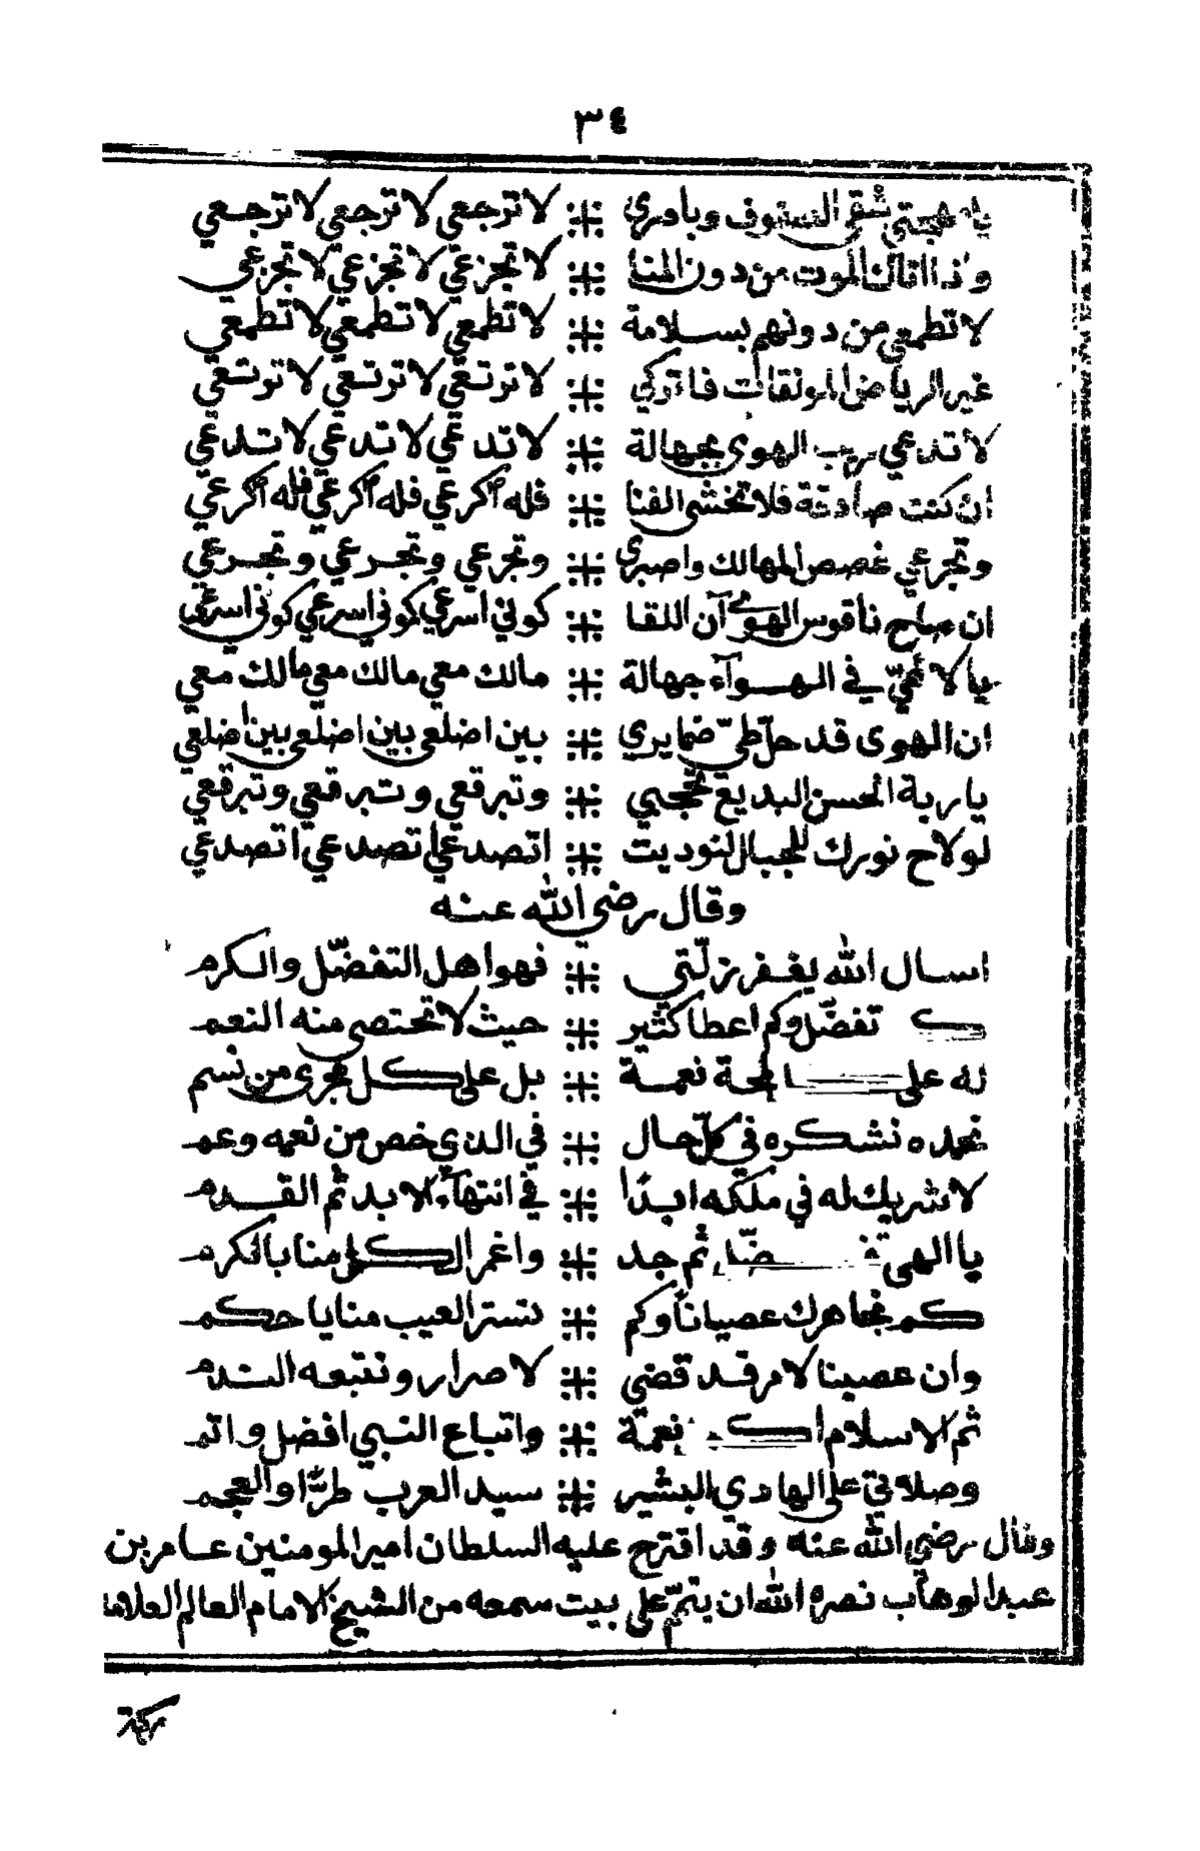 ٣٤
يا مهجتي شقي السيوف وبادري ⁜ لا ترجعي لا ترجعي لا ترجعي
واذا اتاك الموت من دون المنا ⁜ لا تجزعي لا تجزعي لا تجزعي
لا تطمعي من دونهم بسلامة ⁜ لا تطمعي لا تطمعي لا تطمعي
غير الرياض المونقات فاتركي ⁜ لا ترتعي لا ترتعي لا ترتعي
لا تدعي الهوى بجهالة ⁜ لا تدعي لا تدعي لا تدعي
ان كنت صادقة فلا تخشي الفنا ⁜ فله اكرعي فله اكرعي فله اكرعي
وتجرعي غصص المهالك واصبري ⁜ وتجرعي وتجرعي وتجرعي
ان صاح ناقوس الهوى آن اللقا ⁜ كوني اسرعي كوني اسرعي كوني اسرعي
يا لائمي في الهوآء جهالة ⁜ مالك معي مالك معي مالك معي
ان الهوى قد حلّ طيّ ضمايري ⁜ بين اضلعي بين اضلعي بين اضلعي
يا ربة الحسن البديع تحجبي ⁜ وتبرقعي وتبرقعي وتبرقعي
لو لاح نورك للجبال لنوديت ⁜ اتصدعي اتصدعي اتصدعي
وقال رضي الله عنه
اسال الله يغفر زلّتي ⁜ فهو اهل التفضّل والكرم
كم تفضّل وكم اعطا كثير ⁜ حيث لا تحتصي منه النعم
له على لمحة نعمة ⁜ بل على كل مجرى من نسم
نحمده نشكره في كلّ حال ⁜ في الذي خص من نعمه وعم
لا شريك له في ملكه ابدًا ⁜ في انتهآء الابد ثم القدم
يا الهي تفضّل ثم جد ⁜ واغمر الكل منا بالكرم
كم نجاهرك عصيانًا وكم ⁜ تستر العيب منا يا حكم
وان عصينا لامر قد قضي ⁜ لا صرار ونتبعه الندم
ثم الاسلام اكبر نعمة ⁜ واتباع النبي افضل واتم
وصلاتي على الهادي البشير ⁜ سيد العرب طرًّا والعجم
وقال رضي الله عنه وقد اقترح عليه السلطان امير المومنين عامر بن
عبد الوهاب نصره الله ان يتمّ على بيت سمعه من الشيخ الامام العالم العلامة
بركة